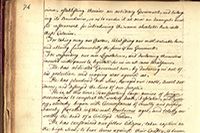 74
nce, establishing therein an arbitrary Government, and enlarg-
ing its Boundaries, so as to render it at once an example and
fit instrument for introducing the same absolute rule into
these Colonies.
For taking away our Charters, abolishing our most valuable Laws,
and altering fundamentally the forms of our Governments.
For suspending our own Legislatures, and declaring themselves
invested with power to legislate for us in all cases whatsoever.
He has abdicated Government here, by declaring us out of
his protection, and waging war against us.
He has plundered our Seas, ravaged our coasts, burnt our
towns, and destroyed the lives of our people.
He is at this time transporting large armies of foreign
mercenaries to compleat the works of death, desolation and tyran-
ny, already begun with Circumstances of cruelty and perfidy
the head of a civilized nation.
He has constrained our fellow Citizens, taken captive on
the high seas, to bear arms against their Country, to become